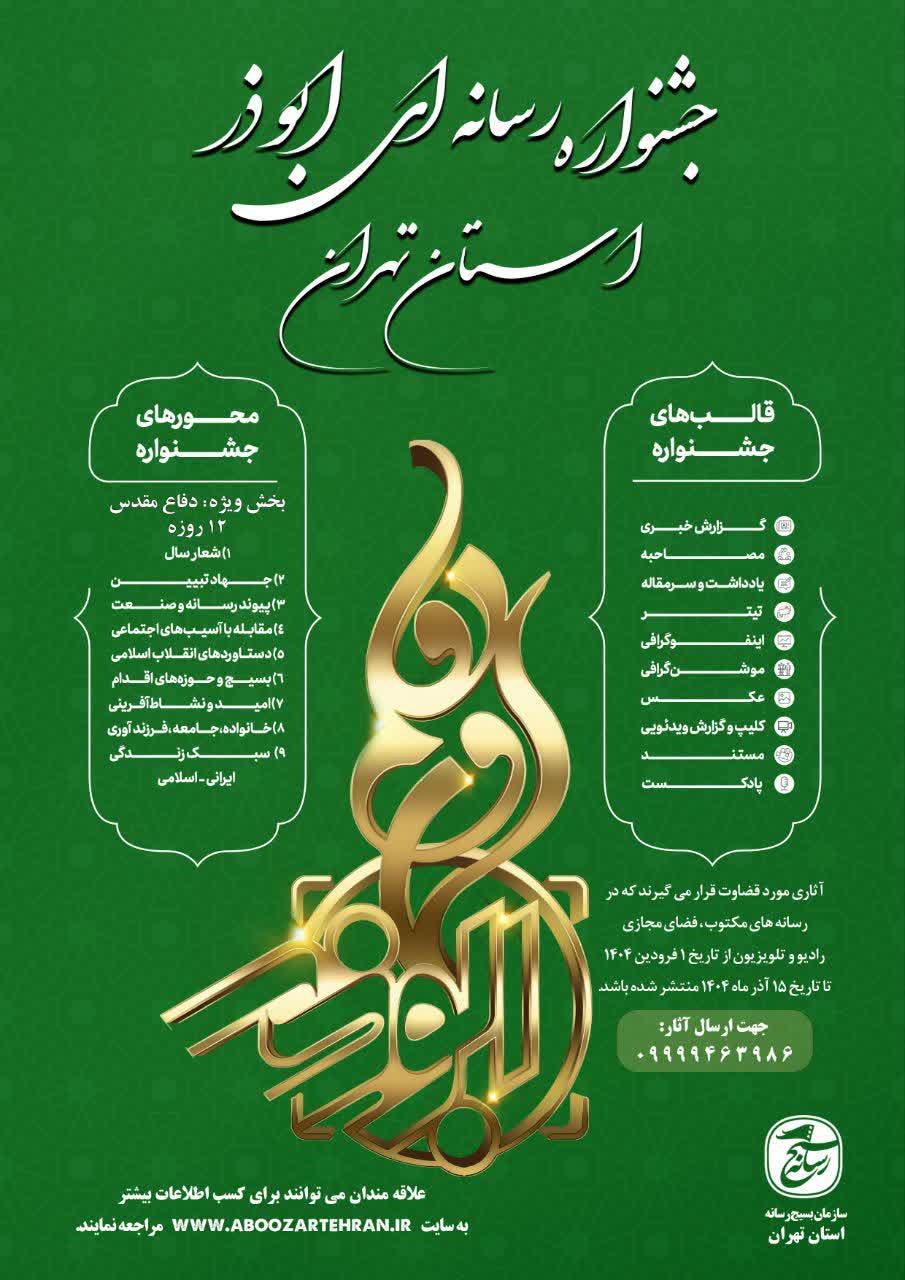 جشنواره رسانه ای ابوذر
استان تهران
قالب‌های
جشنواره
گزارش خبری
مصاحبه
یادداشت و سرمقاله
تیتر
اینفوگرافی
موشن‌گرافی
عکس
کلیپ و گزارش ویدئویی
مستند
پادکست
محورهای
جشنواره
بخش ویژه: دفاع مقدس
۱۲ روزه
۱) شعار سال
۲) جهاد تبیین
۳) پیوند رسانه و صنعت
٤) مقابله با آسیب‌های اجتماعی
۵) دستاوردهای انقلاب اسلامی
٦) بسیج و حوزه‌های اقدام
۷) امید و نشاط‌آفرینی
۸) خانواده، جامعه، فرزند آوری
۹) سبک زندگی
ایرانی - اسلامی
آثاری مورد قضاوت قرار می گیرند که در
رسانه های مکتوب، فضای مجازی
رادیو و تلویزیون از تاریخ ۱ فرودین ۱۴۰۴
تا تاریخ ۱۵ آذر ماه ۱۴۰۴ منتشر شده باشد.
جهت ارسال آثار:
۰۹۹۹۹۴۶۳۹۸۶
بسیج رسانه
سازمان بسیج رسانه
استان تهران
علاقه مندان می توانند برای کسب اطلاعات بیشتر
به سایت WWW.ABOOZARTEHRAN.IR مراجعه نمایند.